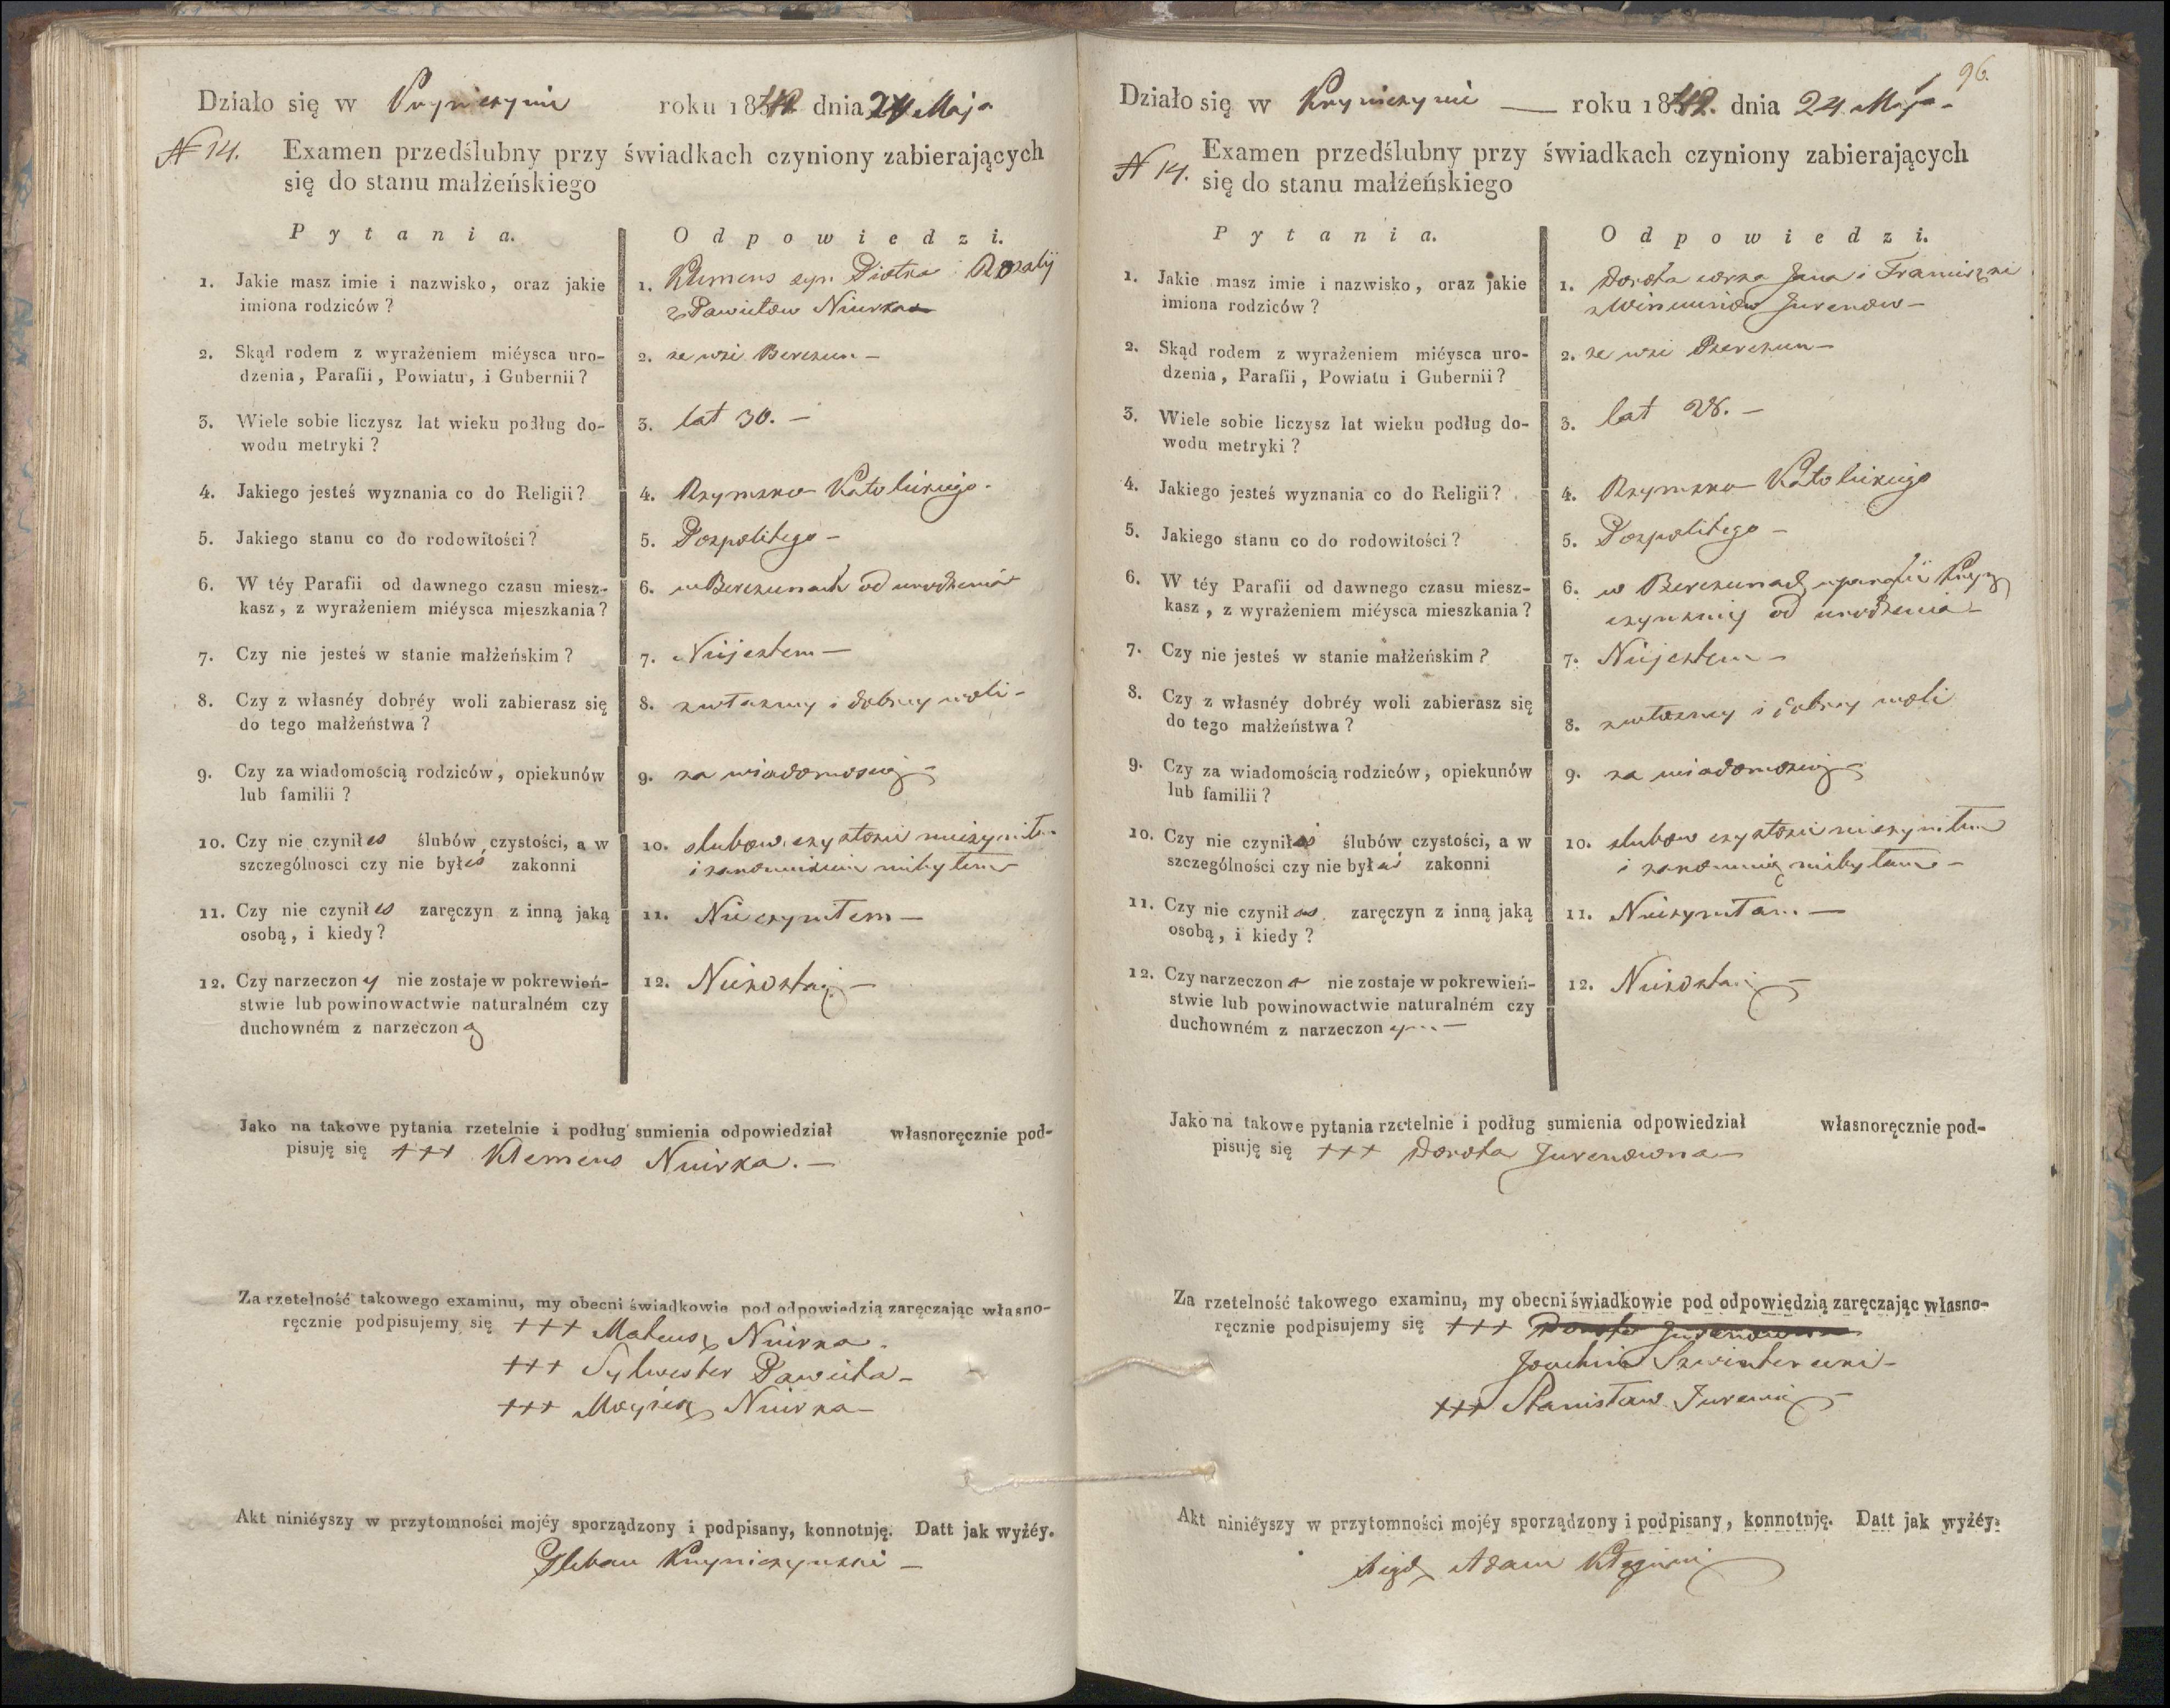 Działo się w Kryniczynie roku 1842 dnia 24 Maja
N 14. Examen przedślubny przy świadkach czyniony zabierających
się do stanu małżeńskiego
Pytania. Odpowiedzi.
1. Jakie masz imie i nazwisko, oraz jakie
imiona rodziców?
1. Klemens syn Piotra i Rozalij
z Pawiłów Niurka
2. Skąd rodem z wyrażeniem miéysca uro-
dzenia, Parafii, Powiatu, i Gubernii?
2. ze wsi Berezun –
3. Wiele sobie liczysz lat wieku podług do-
wodu metryki?
3. lat 30. –
4. Jakiego jesteś wyznania co do Religii?
4. Rzymsko Katolickiego.
5. Jakiego stanu co do rodowitości?
5. Pospolitego –
6. W téy Parafii od dawnego czasu miesz-
kasz, z wyrażeniem miéysca mieszkania?
6. w Berezunach od urodzenia
7. Czy nie jesteś w stanie małżeńskim?
7. Niejestem –
8. Czy z własnéy dobréy woli zabierasz się
do tego małżeństwa?
8. z własney i dobrey woli –
9. Czy za wiadomością rodziców, opiekunów
lub familii?
9. za wiadomoscią –
10. Czy nie czynił es ślubów czystości, a w
szczególnosci czy nie był eś zakonni
10. slubow czystosci nieczyniłem
i zakonnikiem niebyłem
11. Czy nie czynił es zaręczyn z inną jaką
osobą, i kiedy?
11. Nie czyniłem –
12. Czy narzeczon y nie zostaje w pokrewień-
stwie lub powinowactwie naturalném czy
duchowném z narzeczon ą
12. Niezostaję –
Jako na takowe pytania rzetelnie i podług sumienia odpowiedział własnoręcznie pod-
pisuję się +++ Klemens Niurka. –
Za rzetelność takowego examinu, my obecni świadkowie pod odpowiedzią zaręczając własno-
ręcznie podpisujemy się +++ Mateusz Niurka.
+++ Sylwester Pawieła –
+++ Moyżesz Niurka –
Akt niniéyszy w przytomności mojéy sporządzony i podpisany, konnotuję. Datt jak wyżéy.
Pleban Kryniczynski –
96.
Działo się w Kryniczynie — roku 1842. dnia 24 Maja –
N 14. Examen przedślubny przy świadkach czyniony zabierających
się do stanu małżeńskiego
Pytania. Odpowiedzi.
1. Jakie masz imie i nazwisko, oraz jakie
imiona rodziców?
1. Dorota corka Jana i Franciszki
Jurenow –
2. Skąd rodem z wyrażeniem miéysca uro-
dzenia, Parafii, Powiatu i Gubernii?
2. ze wsi Berezun –
3. Wiele sobie liczysz lat wieku podług do-
wodu metryki?
3. lat 28. –
4. Jakiego jesteś wyznania co do Religii?
4. Rzymsko Katolickiego
5. Jakiego stanu co do rodowitości?
5. Pospolitego –
6. W téy Parafii od dawnego czasu miesz-
kasz, z wyrażeniem miéysca mieszkania?
6. w Berezunach w parafii Kryni
czynskiey od urodzenia –
7. Czy nie jesteś w stanie małżeńskim?
7. Niejestem –
8. Czy z własnéy dobréy woli zabierasz się
do tego małżeństwa?
8. z własney i dobrey woli
9. Czy za wiadomością rodziców, opiekunów
lub familii?
9. za wiadomoscią
10. Czy nie czynił aś ślubów czystości, a w
szczególności czy nie był aś zakonni
10. slubow czystosci nieczyniłam
i zakonnicą niebyłam –
11. Czy nie czynił aś zaręczyn z inną jaką
osobą, i kiedy?
11. Nieczyniłam. —
12. Czy narzeczon a nie zostaje w pokrewień-
stwie lub powinowactwie naturalném czy
duchowném z narzeczon ym –
12. Niezostaię –
Jako na takowe pytania rzetelnie i podług sumienia odpowiedział własnoręcznie pod-
pisuję się +++ Dorota Jurenowna –
Za rzetelność takowego examinu, my obecni świadkowie pod odpowiędzią zaręczając własno-
ręcznie podpisujemy się +++ Dorota Jurenowna
Joachim
+++ Stanisław Jurenia –
Akt niniéyszy w przytomności mojéy sporządzony i podpisany, konnotuję. Datt jak wyżéy.
Xiądz Adam